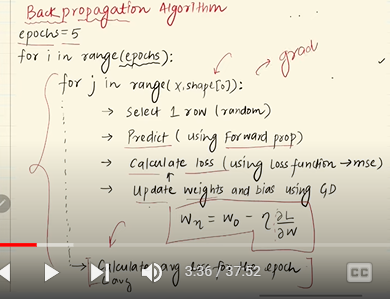 Backpropagation Algorithm
epochs = 5
for i in range(epochs):
for j in range(X.shape[0]):
→ grad
→ Select 1 row (random)
→ Predict (using forward prop)
→ Calculate loss (using loss function → mse)
→ Update weights and bias using GD
Wn = W0 - η ∂L/∂W
→ [Calculate avg loss for the epoch]
Lavg
3:36 / 37:52
CC